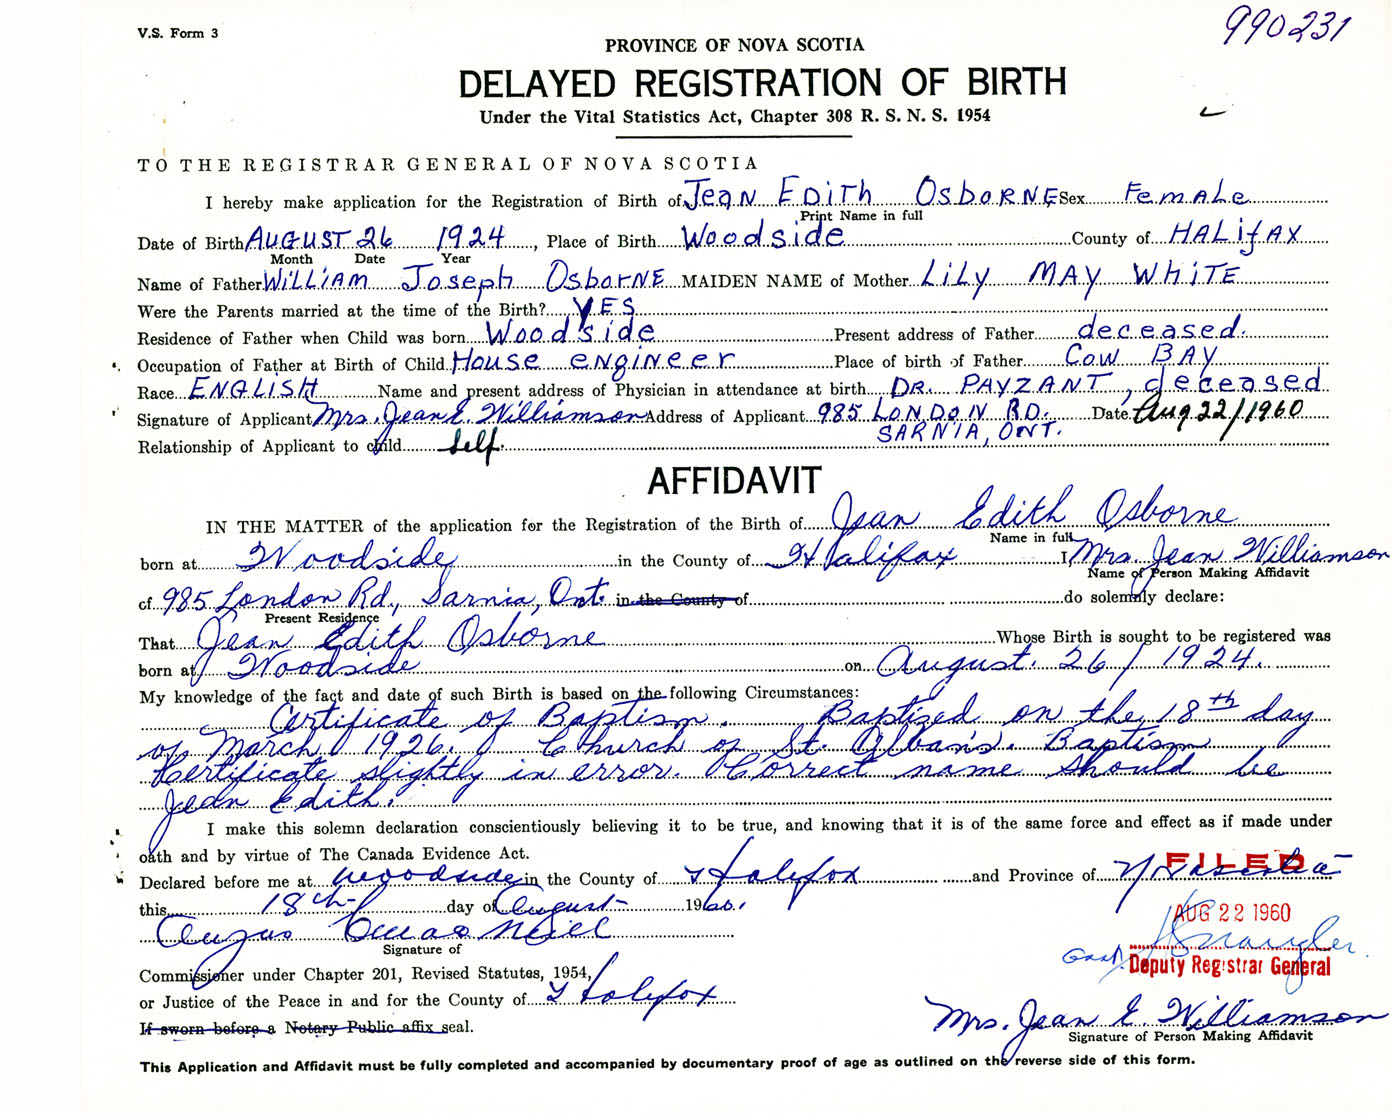 V.S. Form 3
990231
PROVINCE OF NOVA SCOTIA
DELAYED REGISTRATION OF BIRTH
Under the Vital Statistics Act, Chapter 308 R. S. N. S. 1954
TO THE REGISTRAR GENERAL OF NOVA SCOTIA
I hereby make application for the Registration of Birth of Jean Edith Osborne Sex Female
Print Name in full
Date of Birth August 26 1924, Place of Birth Woodside County of Halifax
Month Date Year
Name of Father William Joseph Osborne MAIDEN NAME of Mother Lily May White
Were the Parents married at the time of the Birth? Yes
Residence of Father when Child was born Woodside Present address of Father deceased.
Occupation of Father at Birth of Child House engineer Place of birth of Father Cow Bay
Race English Name and present address of Physician in attendance at birth Dr. Payzant, deceased
Signature of Applicant Mrs. Jean E. Williamson Address of Applicant 985 London Rd. Date Aug 22/1960
Sarnia, Ont.
Relationship of Applicant to child self.
AFFIDAVIT
IN THE MATTER of the application for the Registration of the Birth of Jean Edith Osborne
Name in full
born at Woodside in the County of Halifax I Mrs. Jean Williamson
Name of Person Making Affidavit
of 985 London Rd., Sarnia, Ont. in the County of do solemnly declare:
Present Residence
That Jean Edith Osborne Whose Birth is sought to be registered was
born at Woodside on August. 26/1924.
My knowledge of the fact and date of such Birth is based on the following Circumstances:
Certificate of Baptism. Baptized on the 18th day
of March 1926. Church of St. Alban's. Baptism
Certificate slightly in error. Correct name should be
Jean Edith.
I make this solemn declaration conscientiously believing it to be true, and knowing that it is of the same force and effect as if made under
oath and by virtue of The Canada Evidence Act.
Declared before me at Woodside in the County of Halifax and Province of N Scotia
FILED
this 18th day of August 1960.
AUG 22 1960
Angus
Signature of
Deputy Registrar General
Commissioner under Chapter 201, Revised Statutes, 1954,
or Justice of the Peace in and for the County of Halifax
Mrs. Jean E. Williamson
If sworn before a Notary Public affix seal.
Signature of Person Making Affidavit
This Application and Affidavit must be fully completed and accompanied by documentary proof of age as outlined on the reverse side of this form.